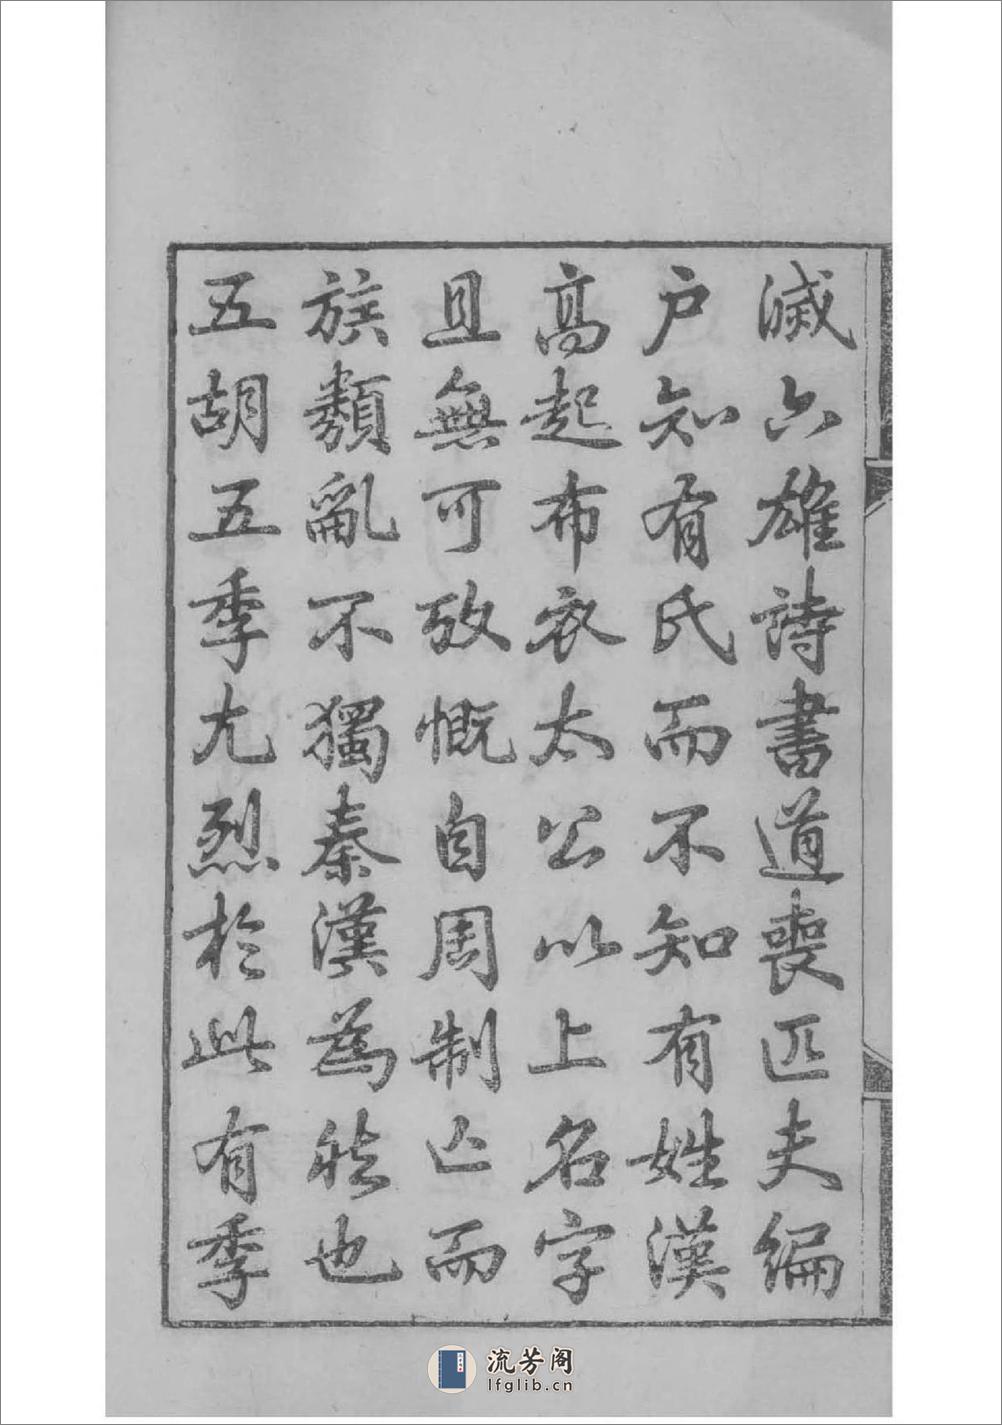 滅六雄詩書道喪匹夫編
户知有氏而不知有姓漢
髙起布衣太公以上名字
且無可攷慨自周制亡而
族類亂不獨秦漢為然也
五胡五季尢烈於此有季
流芳阁
lfglib.cn